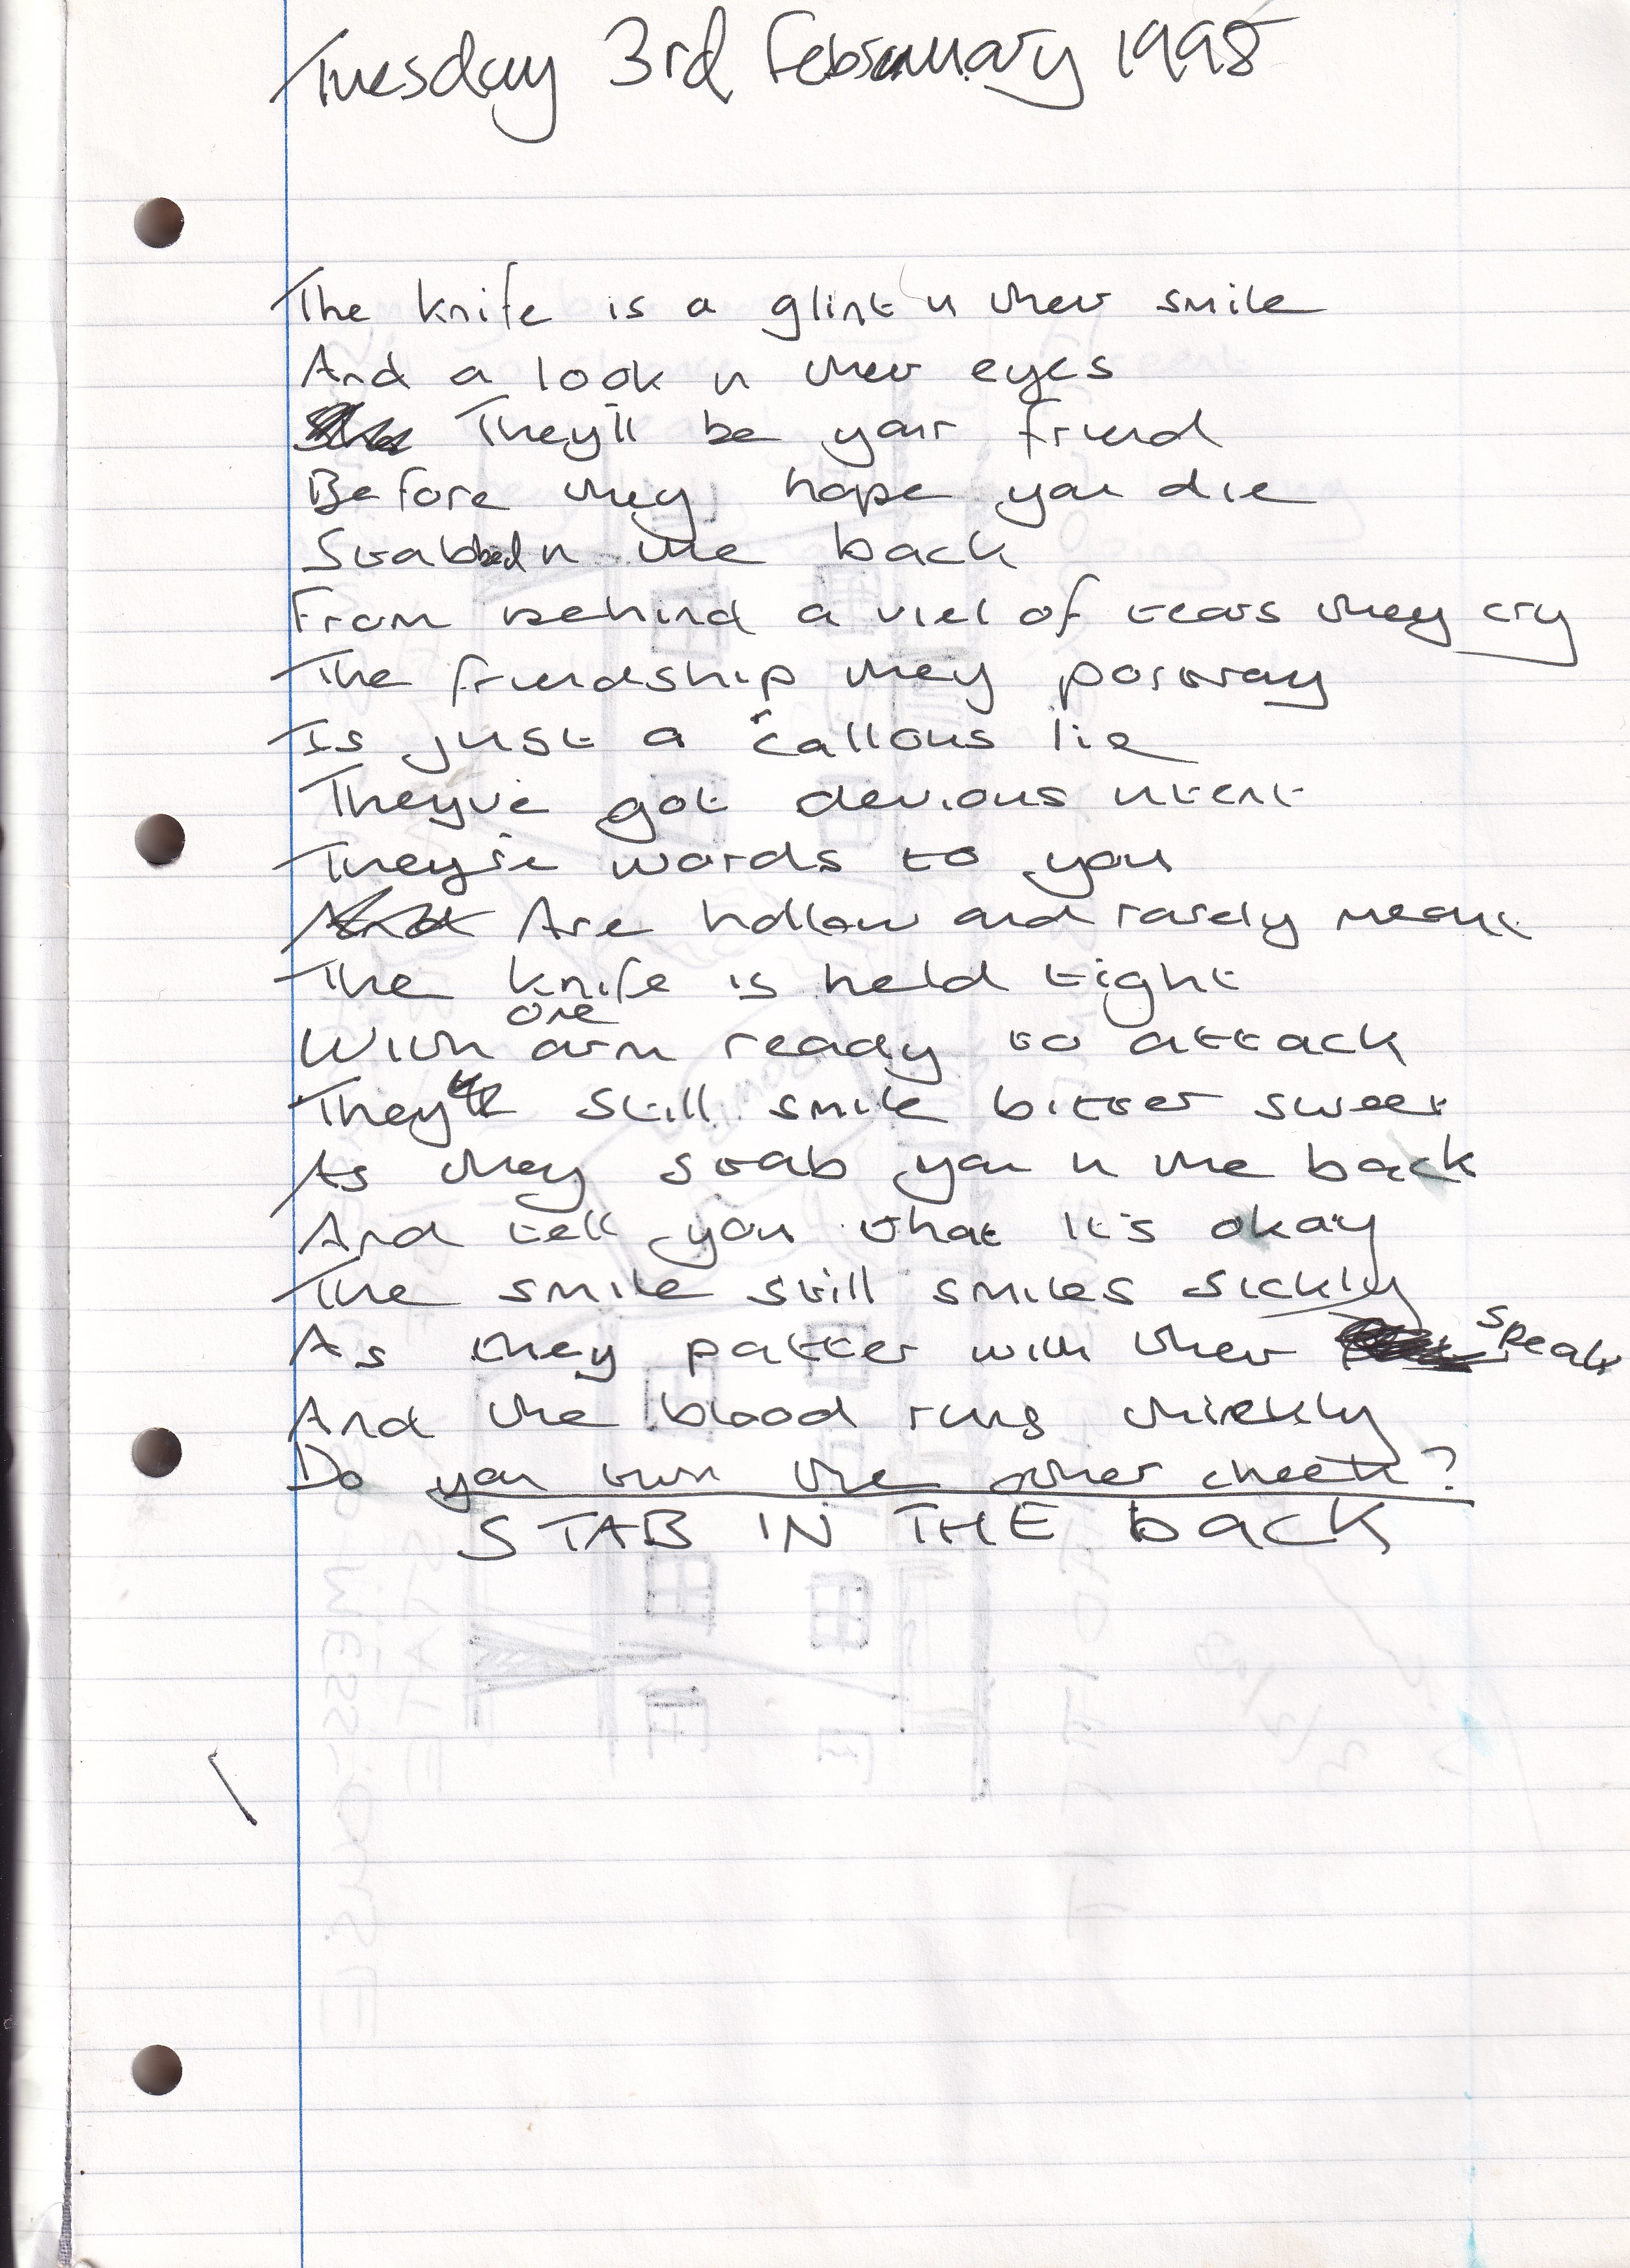 Tuesday 3rd February 1998
The knife is a glint in their smile
And a look in their eyes
They'll be your friend
Before they hope you die
Stabbed in the back
From behind a viel of tears they cry
The friendship they portray
Is just a callous lie
They've got devious intent
They're words to you
And Are hollow and rarely meant
The knife is held tight
With one arm ready to attack
They still smile bitter sweet
As they stab you in the back
And tell you that it's okay
The smile still smiles sickly
As they patter with their speak
And the blood runs thickly
Do you turn the other cheek?
STAB IN THE back